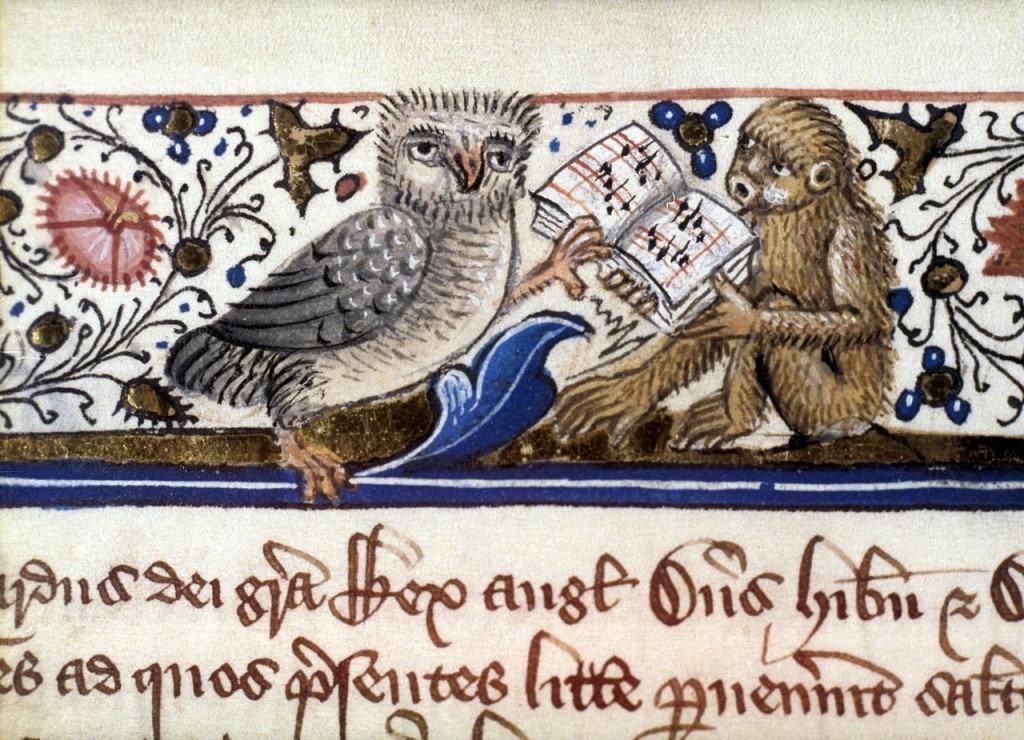 ardus dei gr̄a Rex angl̄ Dn̄s hib̄n ⁊
es ad quos p̄sentes litt̄e p̱uen̄int sal̄t